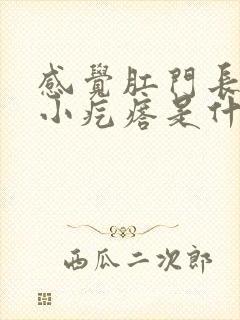 感覺肛門長
小疙瘩是什
西瓜二次郎